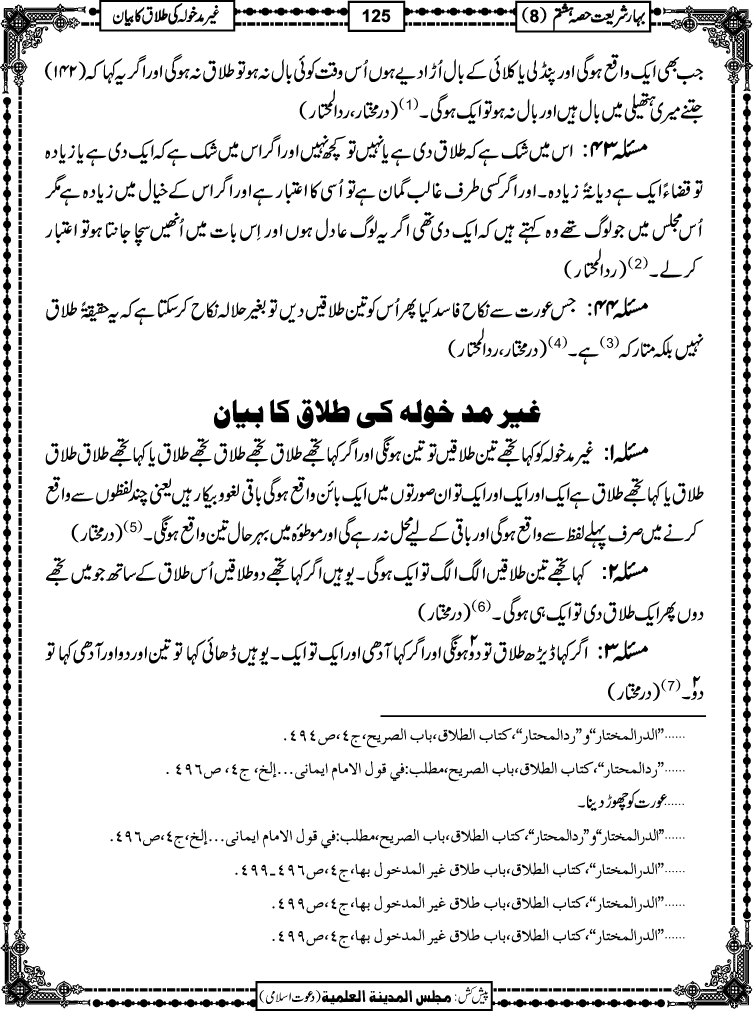 بہارشریعت حصہ ہشتم (8)
125
غیر مدخولہ کی طلاق کا بیان
جب بھی ایک واقع ہوگی اور پنڈلی یا کلائی کے بال اُڑادیے ہوں اُس وقت کوئی بال نہ ہو تو طلاق نہ ہوگی اور اگر یہ کہا کہ (۱۴۲)
جتنے میری ہتھیلی میں بال ہیں اور بال نہ ہو تو ایک ہوگی۔(1) (درمختار، ردالمحتار)
مسئلہ ۴۳: اس میں شک ہے کہ طلاق دی ہے یا نہیں تو کچھ نہیں اور اگر اس میں شک ہے کہ ایک دی ہے یا زیادہ
تو قضاءً ایک ہے دیانۃً زیادہ۔ اور اگر کسی طرف غالب گمان ہے تو اُسی کا اعتبار ہے اور اگر اس کے خیال میں زیادہ ہے مگر
اُس مجلس میں جو لوگ تھے وہ کہتے ہیں کہ ایک دی تھی اگر یہ لوگ عادل ہوں اور اِس بات میں اُنھیں سچا جانتا ہو تو اعتبار
کرلے۔(2) (ردالمحتار)
مسئلہ ۴۴: جس عورت سے نکاح فاسد کیا پھر اُس کو تین طلاقیں دیں تو بغیر حلالہ نکاح کرسکتا ہے کہ یہ حقیقۃً طلاق
نہیں بلکہ متارکہ(3) ہے۔(4) (درمختار، ردالمحتار)
غیر مدخولہ کی طلاق کا بیان
مسئلہ ۱: غیر مدخولہ کو کہا تجھے تین طلاقیں تو تین ہونگی اور اگر کہا تجھے طلاق تجھے طلاق تجھے طلاق یا کہا تجھے طلاق طلاق
طلاق یا کہا تجھے طلاق ہے ایک اور ایک اور ایک تو ان صورتوں میں ایک بائن واقع ہوگی باقی لغو و بیکار ہیں یعنی چند لفظوں سے واقع
کرنے میں صرف پہلے لفظ سے واقع ہوگی اور باقی کے لیے محل نہ رہے گی اور موطؤہ میں بہرحال تین واقع ہونگی۔(5) (درمختار)
مسئلہ ۲: کہا تجھے تین طلاقیں الگ الگ تو ایک ہوگی۔ یوہیں اگر کہا تجھے دو طلاقیں اُس طلاق کے ساتھ جو میں تجھے
دوں پھر ایک طلاق دی تو ایک ہی ہوگی۔(6) (درمختار)
مسئلہ ۳: اگر کہا ڈیڑھ طلاق تو دو۲ ہونگی اور اگر کہا آدھی اور ایک تو ایک۔ یوہیں ڈھائی کہا تو تین اور دو اور آدھی کہا تو
دو۲۔(7) (درمختار)
......”الدرالمختار“و”ردالمحتار“،کتاب الطلاق،باب الصریح،ج٤،ص٤٩٤.
......”ردالمحتار“،کتاب الطلاق،باب الصریح،مطلب:في قول الامام ایمانی...إلخ، ج٤، ص٤٩٦ .
......عورت کو چھوڑ دینا۔
......”الدرالمختار“و”ردالمحتار“، کتاب الطلاق،باب الصریح،مطلب:في قول الامام ایمانی...إلخ،ج٤،ص٤٩٦.
......”الدرالمختار“،کتاب الطلاق،باب طلاق غیر المدخول بها،ج٤،ص٤٩٦ـ٤٩٩.
......”الدرالمختار“،کتاب الطلاق،باب طلاق غیر المدخول بها،ج٤،ص٤٩٩.
......”الدرالمختار“،کتاب الطلاق،باب طلاق غیر المدخول بها،ج٤،ص٤٩٩.
پیش کش: مجلس المدینة العلمیة (دعوت اسلامی)